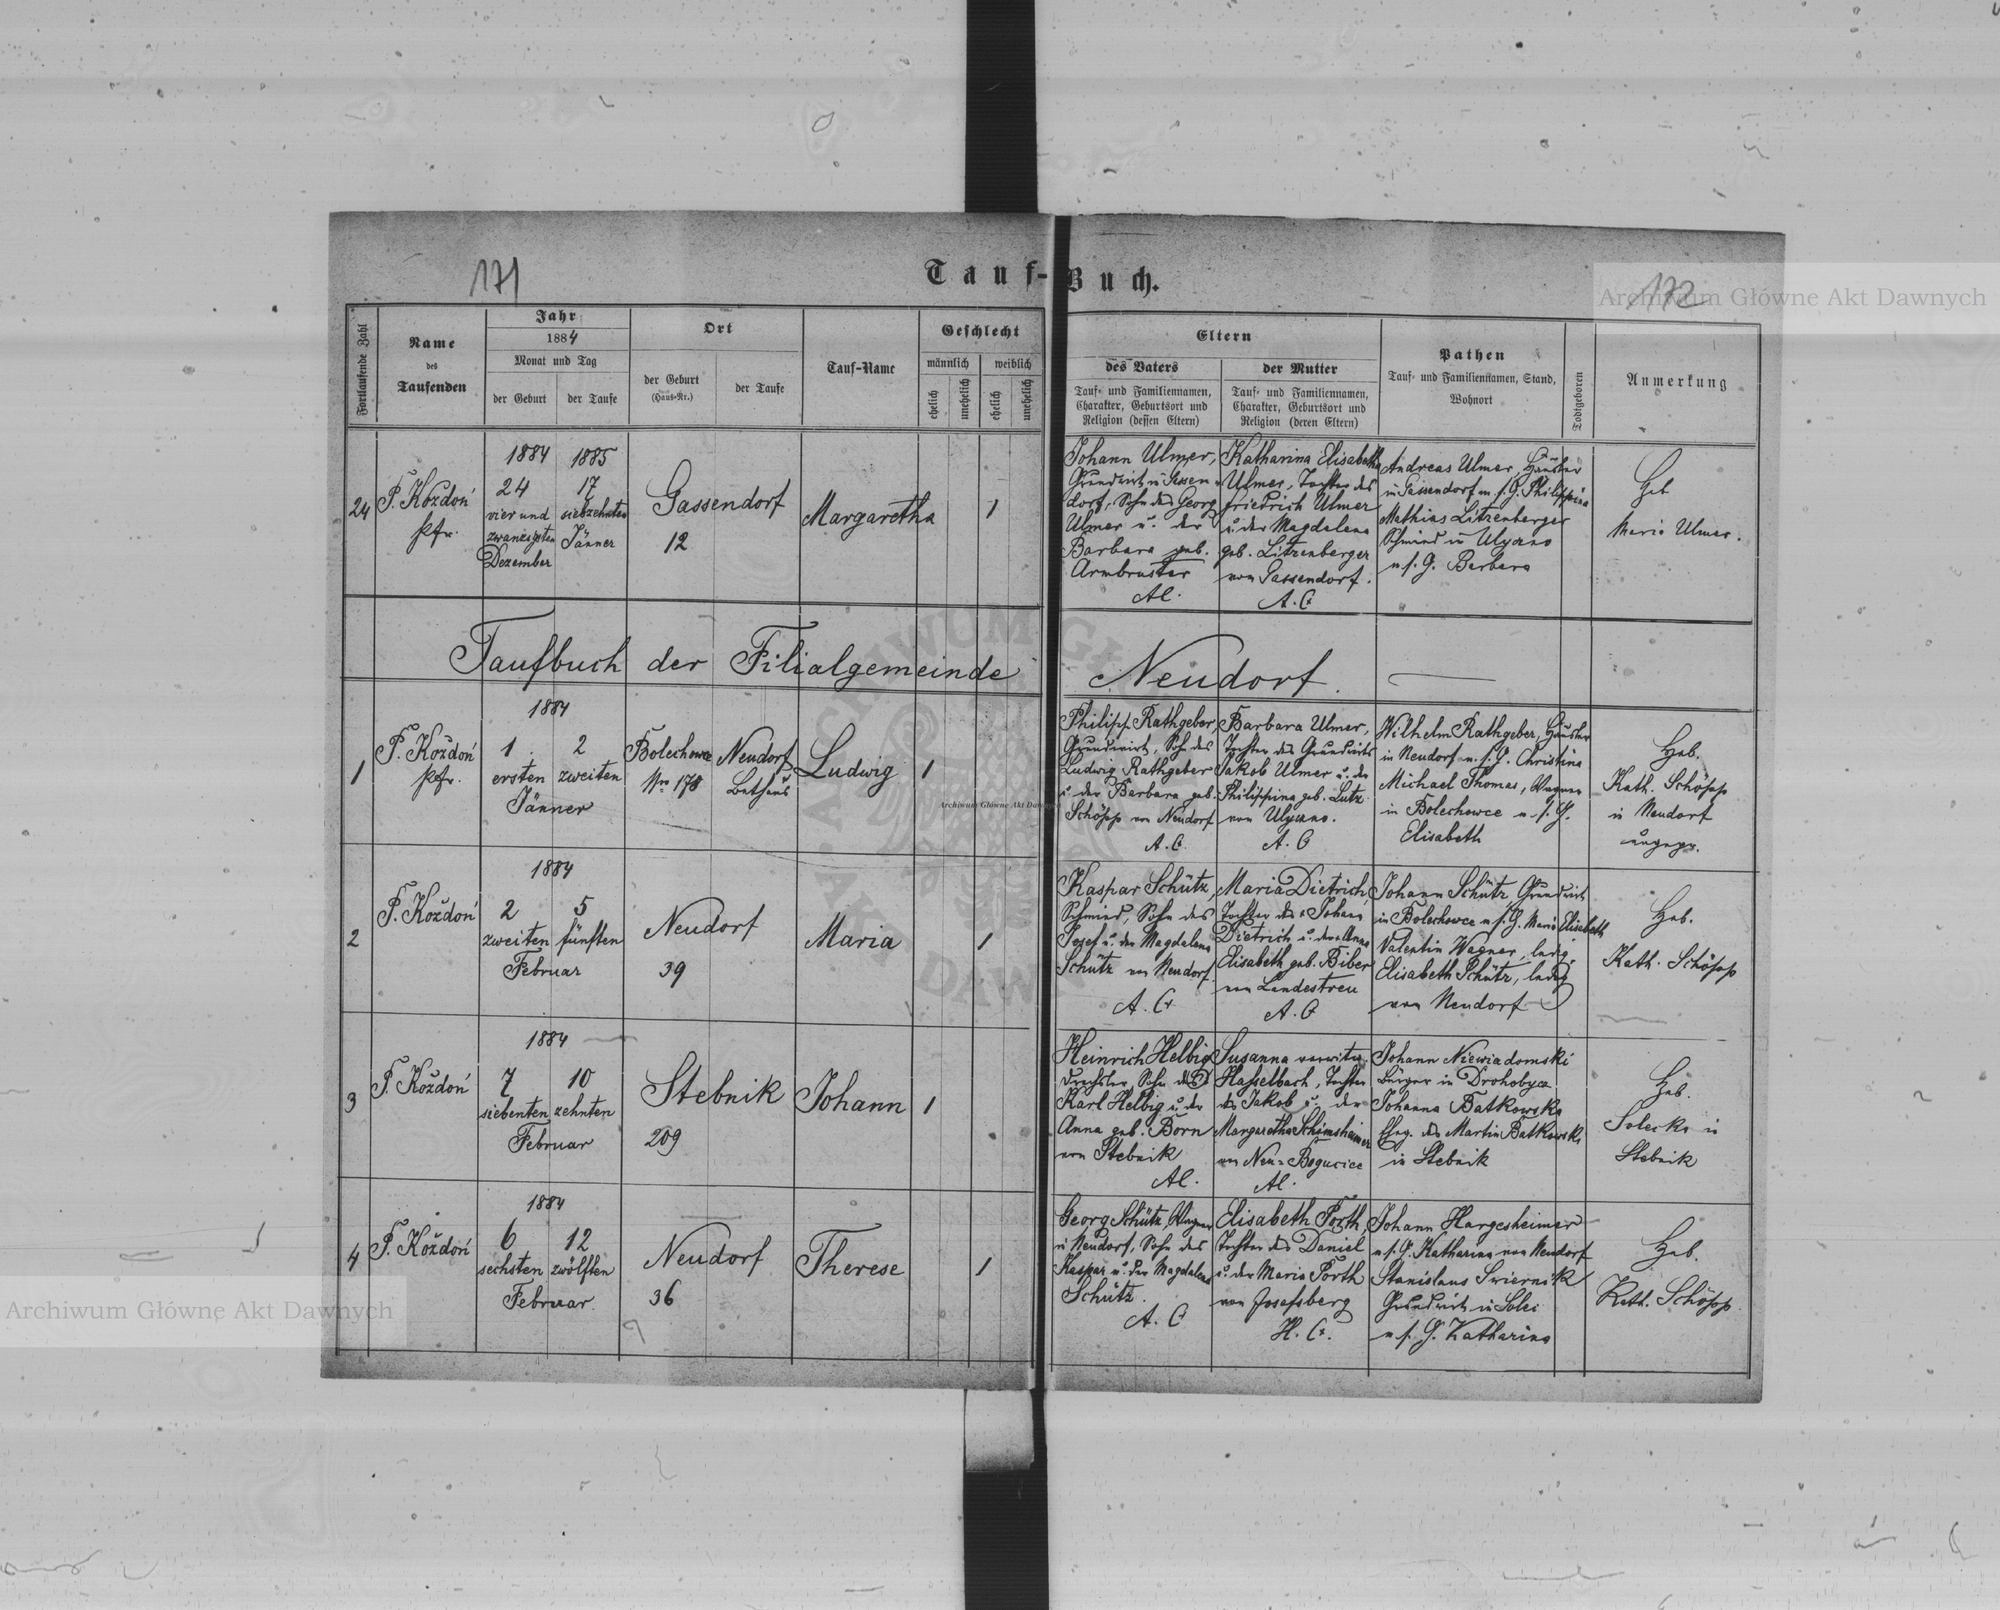 171
Tauf-Buch.
172
Archiwum Główne Akt Dawnych
Fortlaufende Zahl
Name
des
Taufenden
Jahr
1884
Monat und Tag
der Geburt
der Taufe
Ort
der Geburt
(Haus-Nr.)
der Taufe
Tauf-Name
Geschlecht
männlich
weiblich
ehelich
unehelich
ehelich
unehelich
Eltern
des Vaters
Tauf- und Familiennamen,
Charakter, Geburtsort und
Religion (dessen Eltern)
der Mutter
Tauf- und Familiennamen,
Charakter, Geburtsort und
Religion (deren Eltern)
Pathen
Tauf- und Familiennamen, Stand,
Wohnort
Todtgeboren
Anmerkung
24
P. Koždoń
Pfr.
1884
24
vier und
zwanzigsten
Dezember
1885
17
siebzehnten
Jänner
Gassendorf
12
Margaretha
1
Johann Ulmer,
Grundwirt in Gassen-
dorf, Sohn des Georg
Ulmer u. der
Barbara geb.
Armbruster
AC.
Katharina Elisabetha
Ulmer, Tochter des
Friedrich Ulmer
u. der Magdalena
geb. Litzenberger
von Gassendorf.
A. C
Andreas Ulmer, Häusler
in Gassendorf u. s. G. Philippina
Mathias Litzenberger
Schmied in Ulyczno
u. s. G. Barbara
Heb
Maria Ulmer.
Taufbuch der Filialgemeinde Neudorf.
1
P. Koždoń
Pfr.
1884
1.
ersten
2
zweiten
Jänner
Bolechowce
Nro 178
Neudorf
Bethaus
Ludwig
1
Philipp Rathgeber,
Grundwirt, Sohn des
Ludwig Rathgeber
u. der Barbara geb.
Schöpp von Neudorf
A. C.
Barbara Ulmer,
Tochter des Grundwirts
Jakob Ulmer u. der
Philippina geb. Lutz
von Ulyczno.
A. C
Wilhelm Rathgeber, Häusler
in Neudorf u. s. G. Christina
Michael Thomas, Wagner
in Bolechowce u. s. G.
Elisabeth
Heb.
Kath. Schöpp
in Neudorf
ungepr.
Archiwum Główne Akt Dawnych
2
P. Koždoń
1884
2
zweiten
5
fünften
Februar
Neudorf
39
Maria
1
Kaspar Schütz,
Schmied, Sohn des
Josef u. der Magdalena
Schütz von Neudorf.
A. C.
Maria Dietrich,
Tochter des Johann
Dietrich u. der Anna
Elisabeth geb. Biber
von Landestreu
A. C
Johann Schütz Grundwirt
in Bolechowce u. s. G. Maria Elisabeth
Valentin Wagner, ledig,
Elisabeth Schütz, ledig
von Neudorf
Heb.
Kath. Schöpp
3
P. Koždoń
1884
7
siebenten
10
zehnten
Februar
Stebnik
209
Johann
1
Heinrich Helbig
Drechsler, Sohn des
Karl Helbig u. der
Anna geb. Born
von Stebnik
AC.
Susanna verwitw.
Hasselbach, Tochter
des Jakob u. der
Margaretha Schimsheimer
von Neu-Bogucice
AC.
Johann Niewiadomski
Bürger in Drohobycz
Johanna Batkowska
Eheg. des Martin Batkowski
in Stebnik
Heb.
Solecka in
Stebnik
4
P. Koždoń
1884
6
sechsten
12
zwölften
Februar.
Neudorf
36
Therese
1
Georg Schütz Wagner
in Neudorf, Sohn des
Kaspar u. der Magdalena
Schütz.
A. C
Elisabeth Porth
Tochter des Daniel
u. der Maria Porth
von Josefsberg
H. C.
Johann Hargesheimer
u. s. G. Katharina von Neudorf
Stanislaus Swiernik
Grundwirt in Solec
u. s. G. Katharina
Heb.
Kath. Schöpp
Archiwum Główne Akt Dawnych